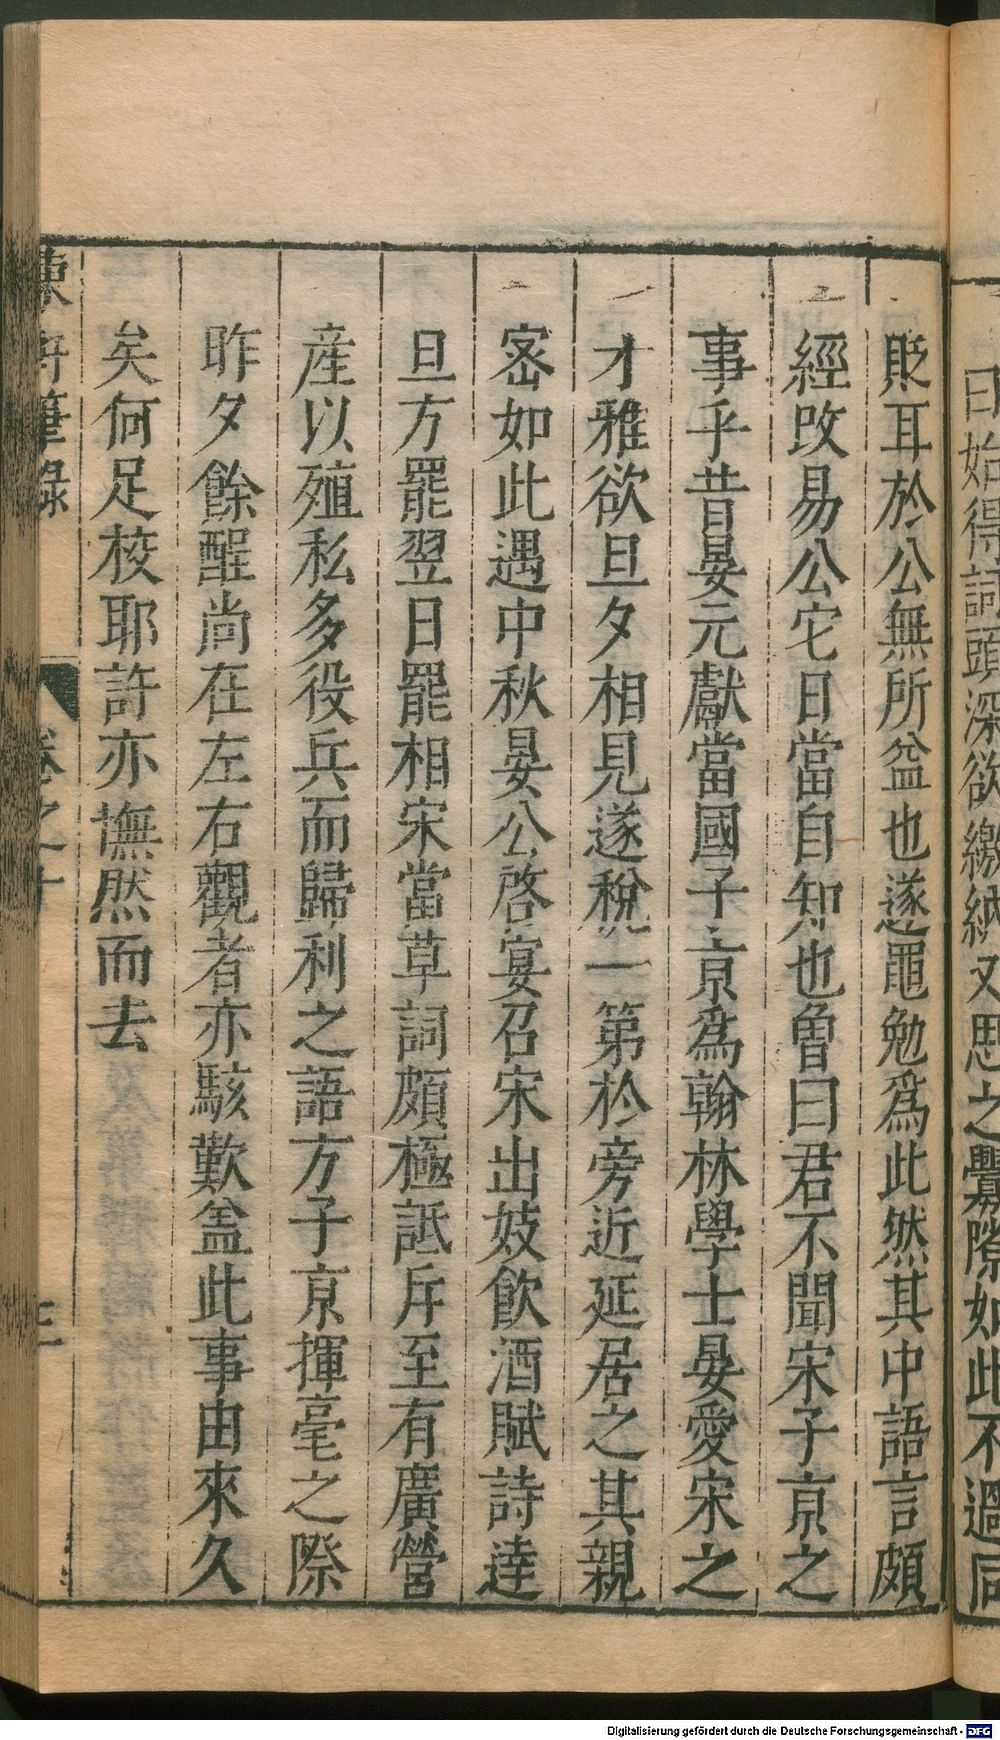 曰始得詞頭深欲繳納又思之釁隙如此不過同
貶耳於公無所益也遂黽勉爲此然其中語言頗
經改易公它日當自知也魯曰君不聞宋子京之
事乎昔晏元獻當國子京爲翰林學士晏愛宋之
才雅欲旦夕相見遂稅一第於旁近延居之其親
宻如此遇中秋晏公啓宴召宋出妓飲酒賦詩達
旦方罷翌日罷相宋當草詞頗極詆斥至有廣營
産以殖私多役兵而歸利之語方子京揮毫之際
昨夕餘酲尚在左右觀者亦駭歎盖此事由來久
矣何足校耶許亦憮然而去
東軒筆錄
卷之十
三
Digitalisierung gefördert durch die Deutsche Forschungsgemeinschaft - DFG